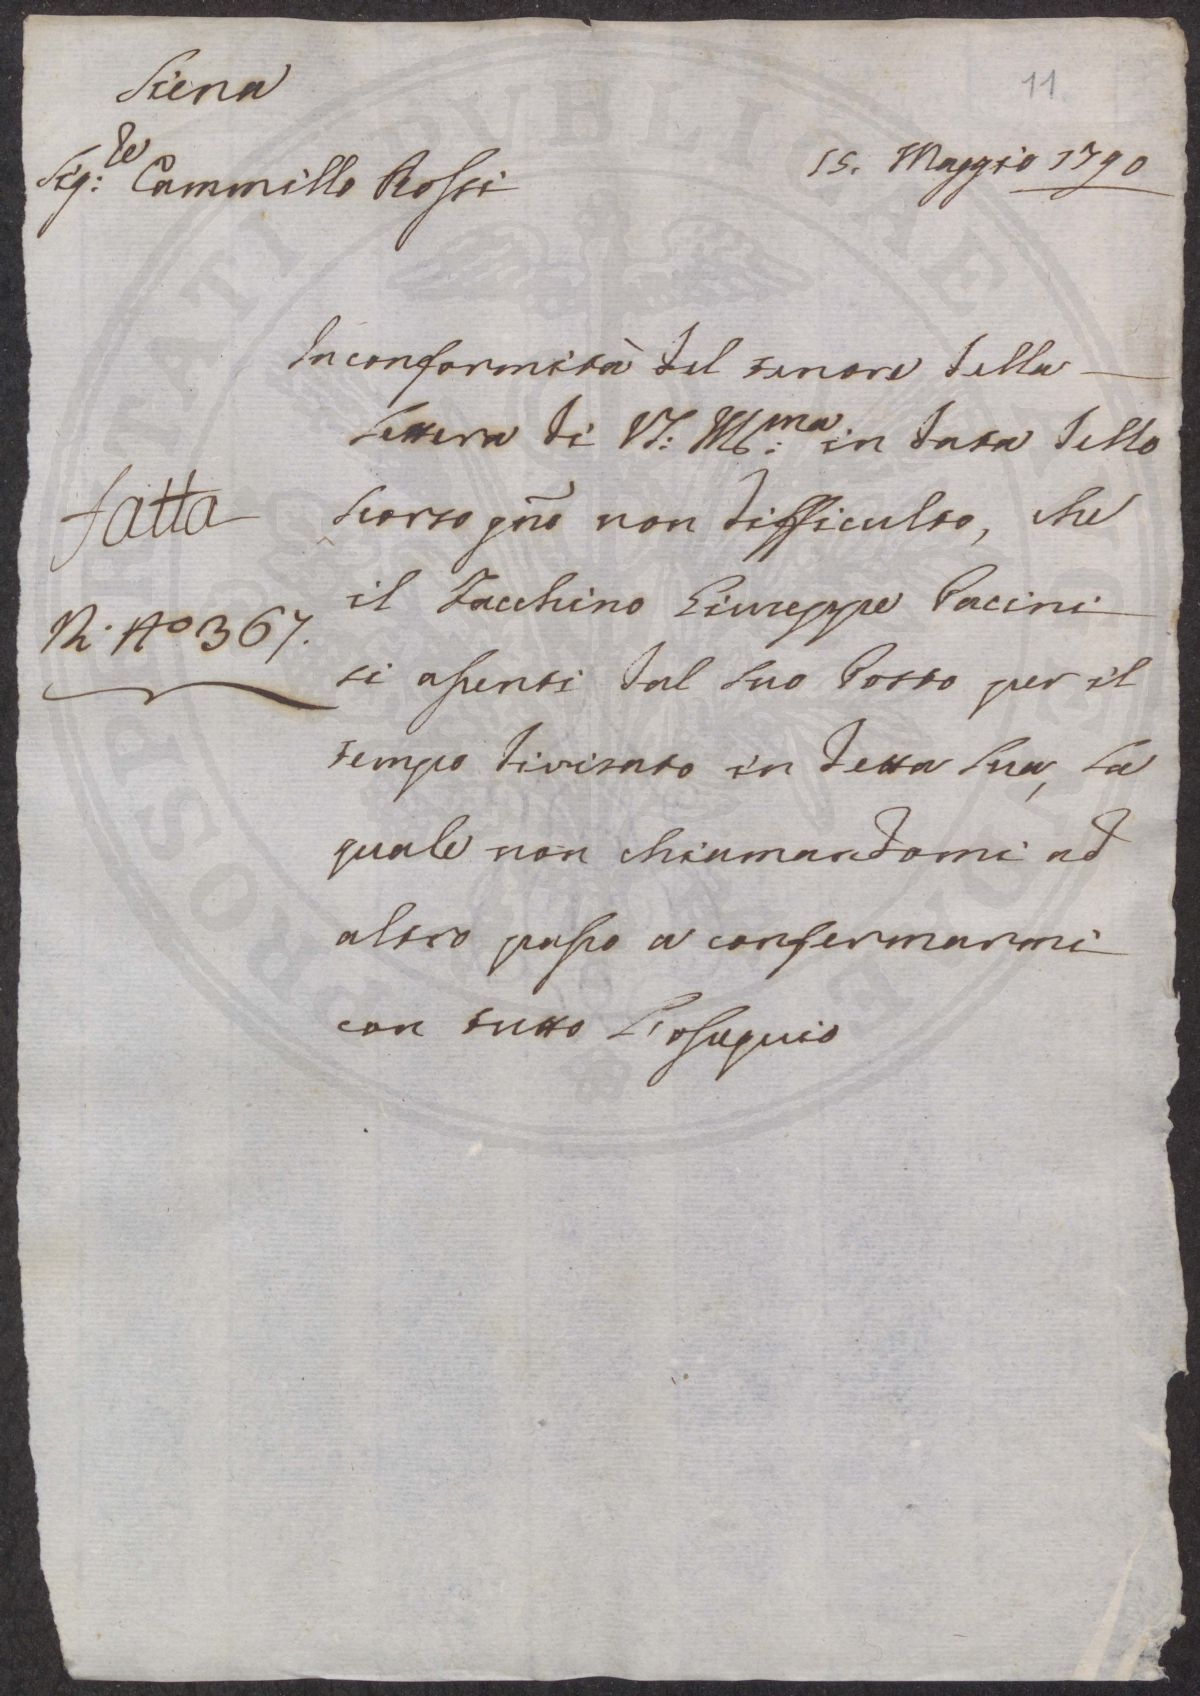 Siena
11.
Sig:re Cammillo Rossi
15. Maggio 1790
Inconformità del tenore della
Lettera di VS: Ill:ma in data dello
fatta
scorso gño non difficulto, che
il Facchino Giuseppe Pacini
R. No 367.
si assenti dal suo Posto per il
tempo divisato in detta sua, La
quale non chiamandomi ad
altro passo a confermarmi
con tutto L'ossequio